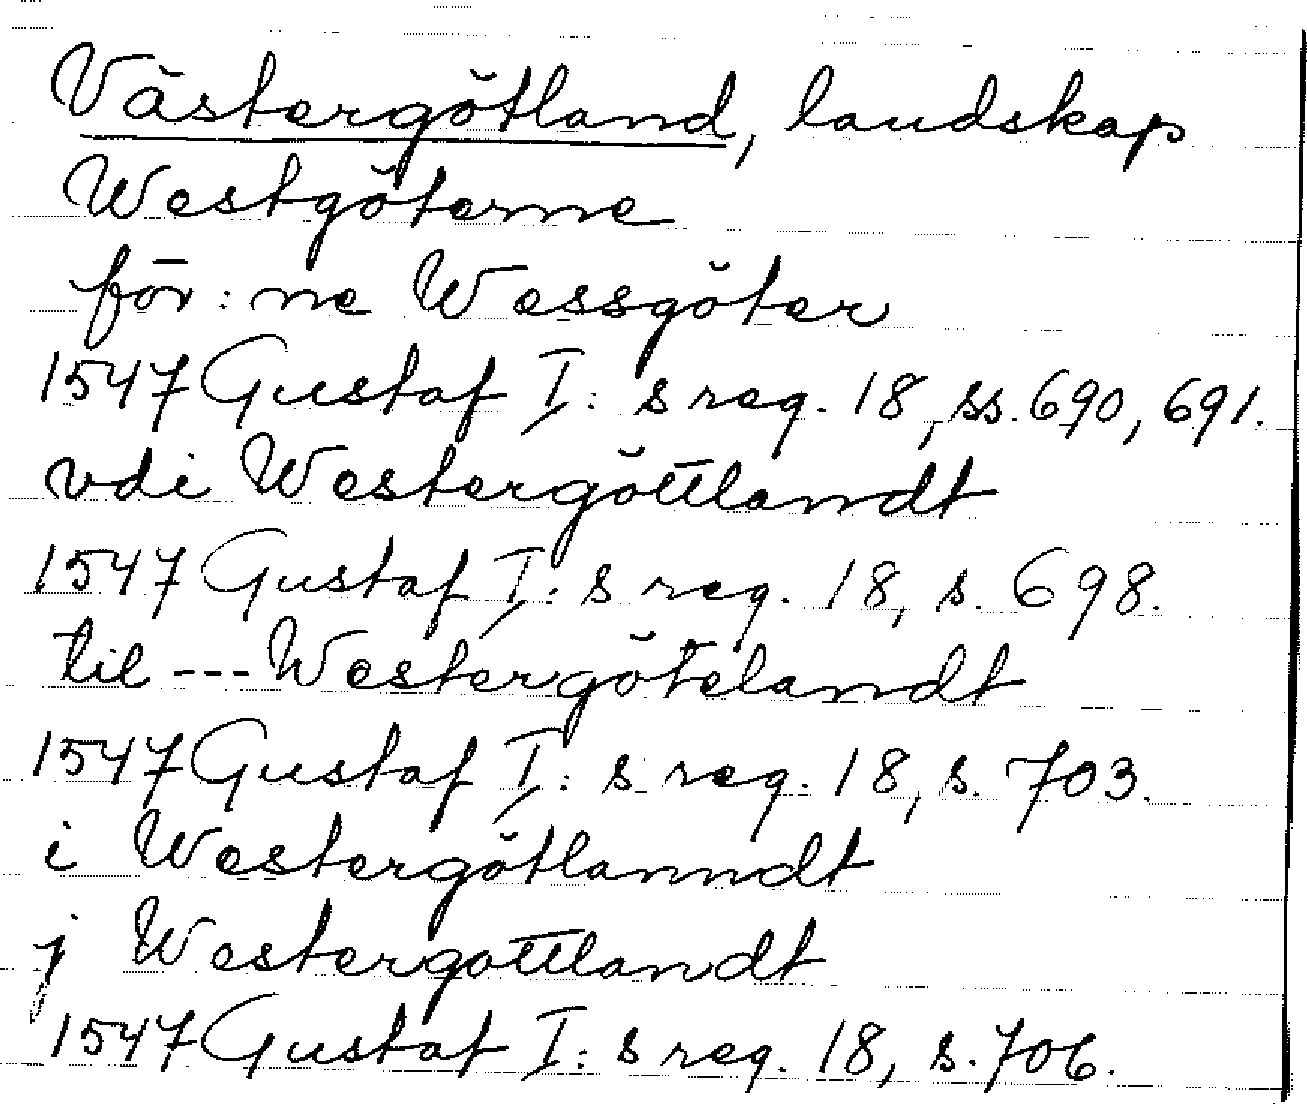 Västergötland, landskap
Westgöterne
för:ne Wessgöter
1547 Gustaf I:s reg. 18, ss. 690, 691.
vdi Westergöttlandt
1547 Gustaf I:s reg. 18, s. 698.
til --- Westergötelandt
1547 Gustaf I:s reg. 18, s. 703.
i Westergötlanndt
j Westergottlandt
1547 Gustaf I:s reg. 18, s. 706.